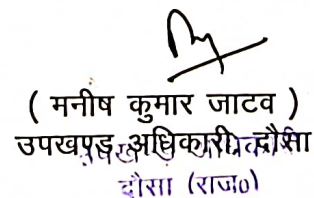 ( मनीष कुमार जाटव )
उपखण्ड अधिकारी, दौसा
दौसा (राज०)